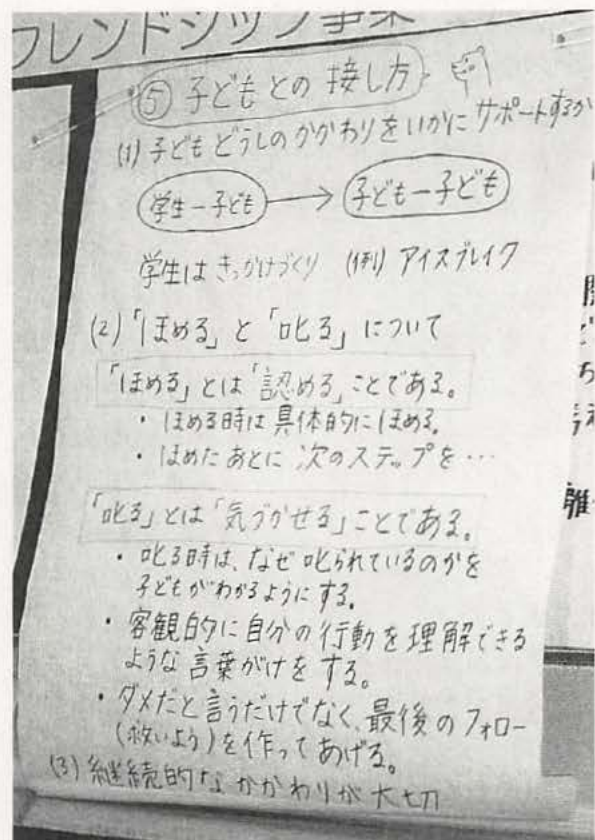 フレンドシップ事業
⑤ 子どもとの接し方
(1) 子どもどうしのかかわりをいかにサポートするか
学生ー子ども → 子どもー子ども
学生はきっかけづくり (例) アイスブレイク
(2)「ほめる」と「叱る」について
「ほめる」とは「認める」ことである。
・ほめる時は具体的にほめる。
・ほめたあとに次のステップを…
「叱る」とは「気づかせる」ことである。
・叱る時は、なぜ叱られているのかを
子どもがわかるようにする。
・客観的に自分の行動を理解できる
ような言葉がけをする。
・ダメだと言うだけでなく、最後のフォロー
(救いよう)を作ってあげる。
(3) 継続的なかかわりが大切